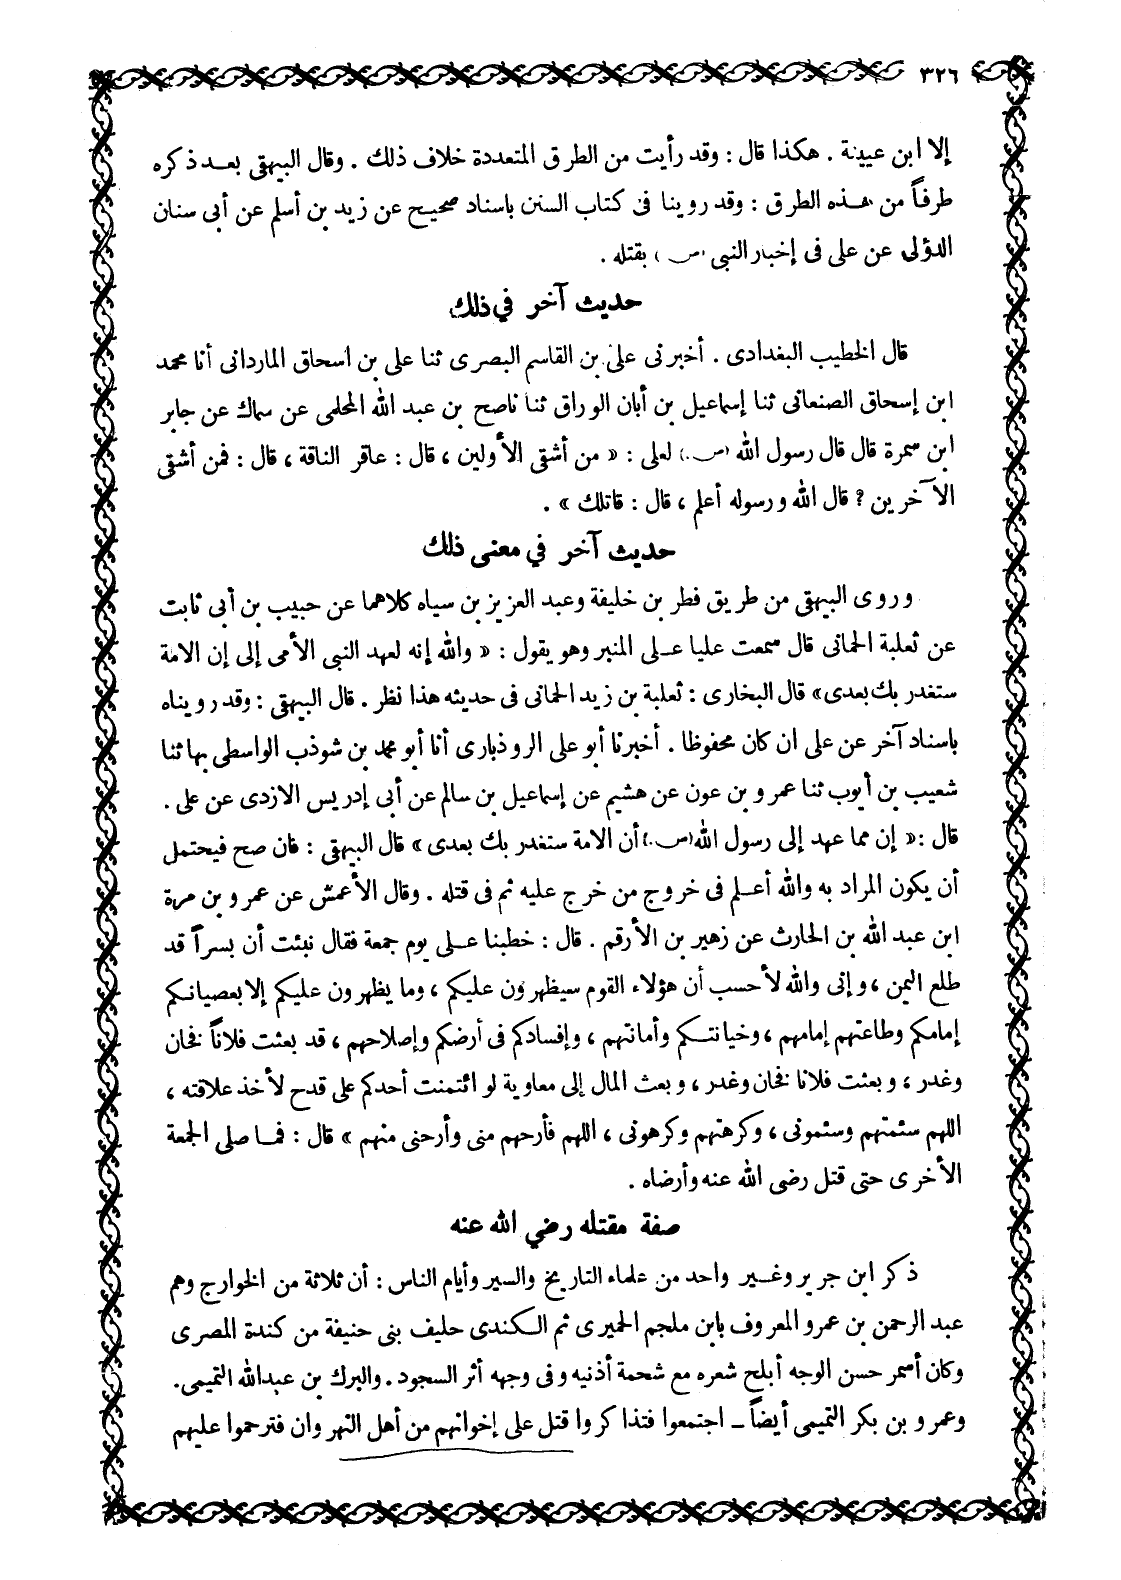 ٣٢٦
إلا ابن عيينة . هكذا قال : وقد رأيت من الطرق المتعددة خلاف ذلك . وقال البيهقى بعد ذكره
طرفاً من هذه الطرق : وقد روينا فى كتاب السنن باسناد صحيح عن زيد بن أسلم عن أبى سنان
الدؤلى عن على فى إخبار النبى (ص) بقتله .
حديث آخر في ذلك
قال الخطيب البغدادى . أخبرنى على بن القاسم البصرى ثنا على بن اسحاق الماردانى أنا محمد
ابن إسحاق الصنعانى ثنا إسماعيل بن أبان الوراق ثنا ناصح بن عبد الله المحلمى عن سماك عن جابر
ابن سمرة قال قال رسول الله (ص.) لعلى : « من أشقى الأولين ، قال : عاقر الناقة ، قال : فمن أشقى
الآخرين ؟ قال الله ورسوله أعلم ، قال : قاتلك » .
حديث آخر في معنى ذلك
وروى البيهقى من طريق فطر بن خليفة وعبد العزيز بن سياه كلاهما عن حبيب بن أبى ثابت
عن ثعلبة الحمانى قال سمعت عليا على المنبر وهو يقول : « والله إنه لعهد النبى الأمى إلى إن الامة
ستغدر بك بعدى» قال البخارى : ثعلبة بن زيد الحمانى فى حديثه هذا نظر . قال البيهقى : وقد رويناه
باسناد آخر عن على ان كان محفوظا . أخبرنا أبو على الروذبارى أنا أبو محمد بن شوذب الواسطى بها ثنا
شعيب بن أيوب ثنا عمرو بن عون عن هشيم عن إسماعيل بن سالم عن أبى إدريس الازدى عن على .
قال : « إن مما عهد إلى رسول الله (ص.) أن الامة ستغدر بك بعدى » قال البيهقى : فان صح فيحتمل
أن يكون المراد به والله أعلم فى خروج من خرج عليه ثم فى قتله . وقال الأعمش عن عمرو بن مرة
ابن عبد الله بن الحارث عن زهير بن الأرقم . قال : خطبنا على يوم جمعة فقال نبئت أن بسراً قد
طلع اليمن ، وإنى والله لأحسب أن هؤلاء القوم سيظهرون عليكم ، وما يظهرون عليكم إلا بعصيانكم
إمامكم وطاعتهم إمامهم ، وخيانتكم وأمانتهم ، وإفسادكم فى أرضكم وإصلاحهم ، قد بعثت فلاناً فخان
وغدر ، وبعثت فلانا فخان وغدر ، وبعث المال إلى معاوية لو ائتمنت أحدكم على قدح لأخذ علاقته ،
اللهم سئمتهم وسئمونى ، وكرهتهم وكرهونى ، اللهم فأرحهم منى وأرحنى منهم » قال : فما صلى الجمعة
الأخرى حتى قتل رضى الله عنه وأرضاه .
صفة مقتله رضي الله عنه
ذكر ابن جرير وغير واحد من علماء التاريخ والسير وأيام الناس : أن ثلاثة من الخوارج وهم
عبد الرحمن بن عمرو المعروف بابن ملجم الحميرى ثم الكندى حليف بنى حنيفة من كندة المصرى
وكان أسمر حسن الوجه أبلج شعره مع شحمة أذنيه وفى وجهه أثر السجود . والبرك بن عبدالله التميمى.
وعمرو بن بكر التميمى أيضاً – اجتمعوا فتذاكروا قتل على إخوانهم من أهل النهروان فترحموا عليهم